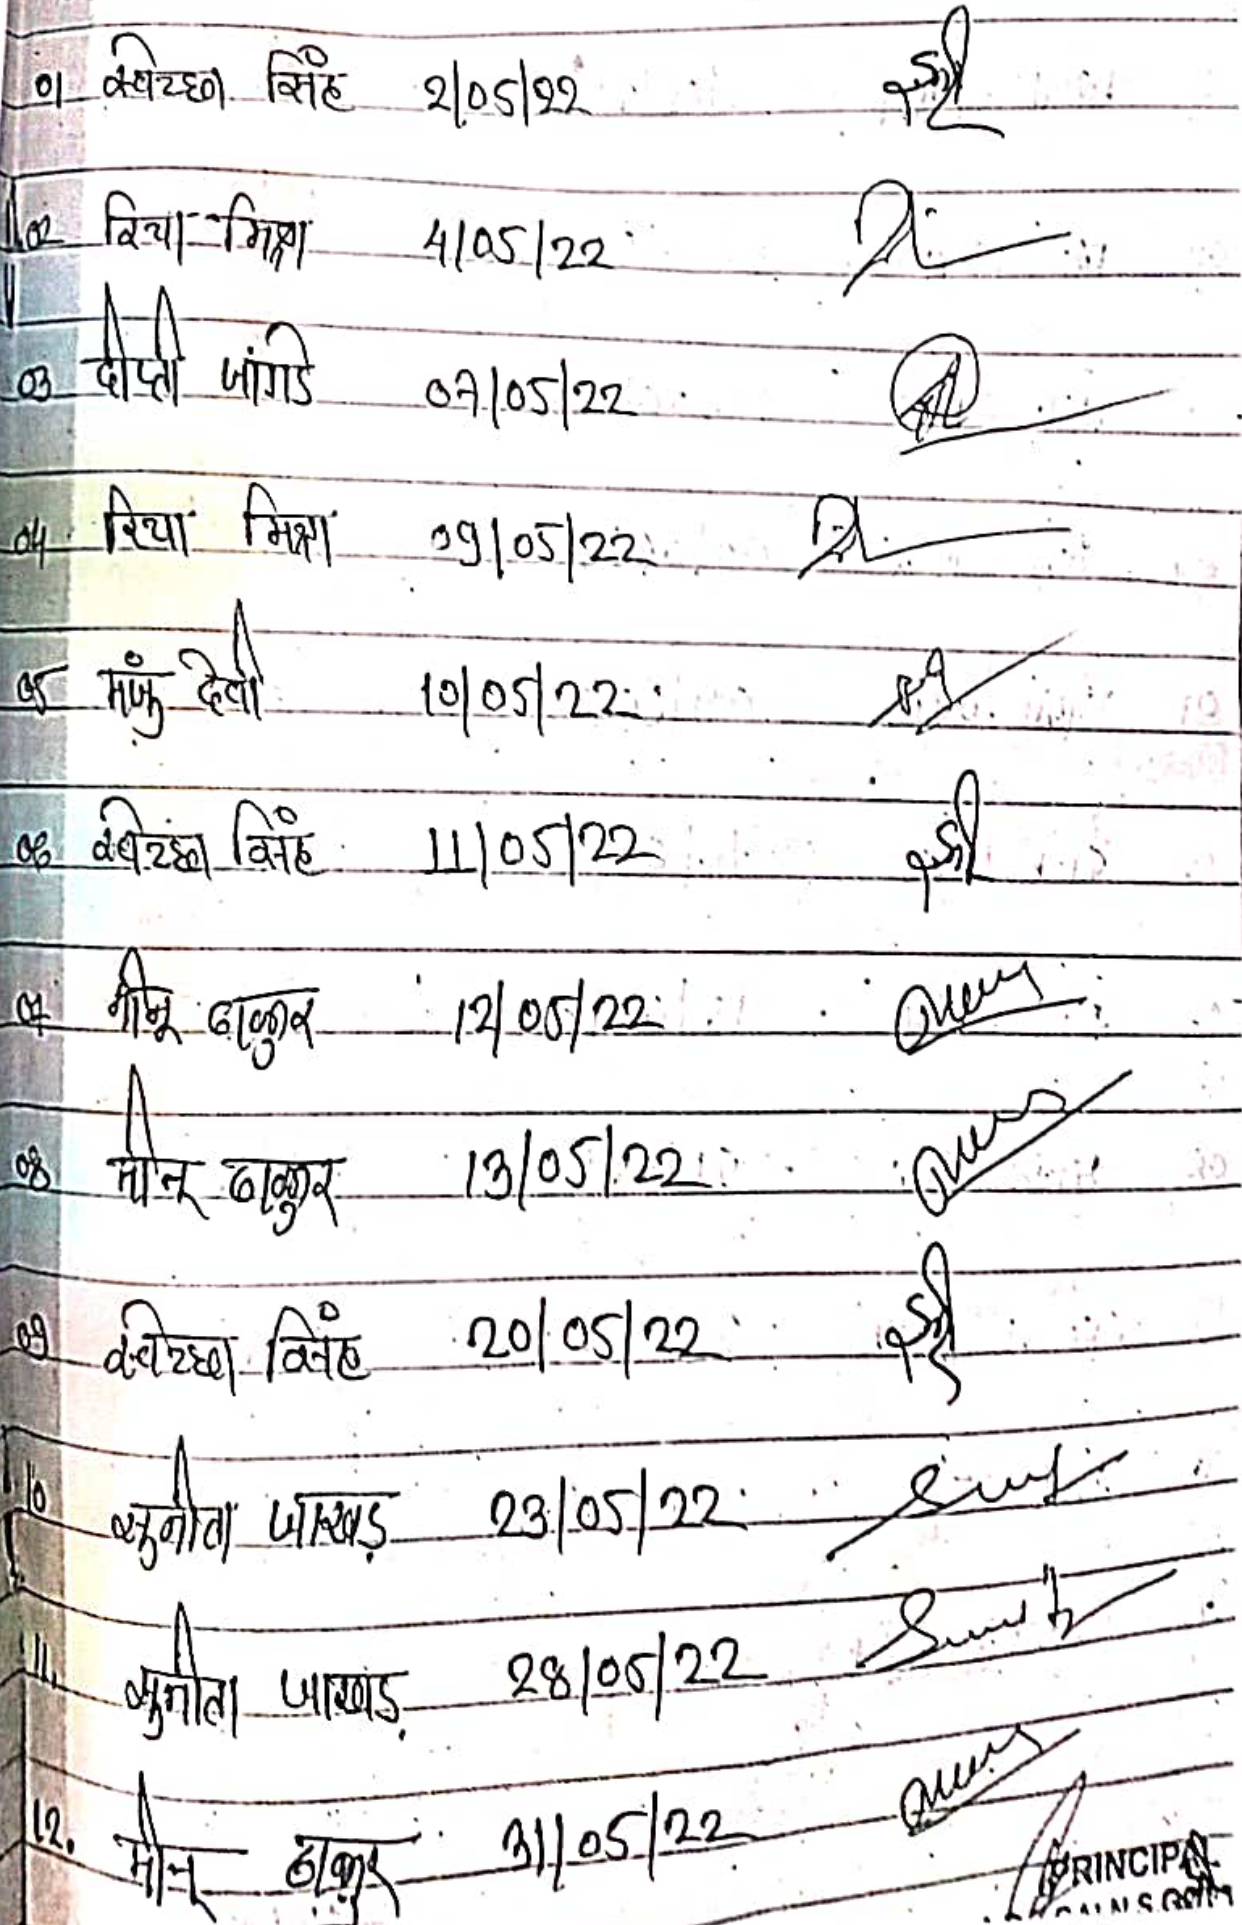 01 स्वेच्छा सिंह 2/05/22
02 रिया मिश्रा 4/05/22
03 दीप्ती जांगडे 07/05/22
04 रिया मिश्रा 09/05/22
05 मंजु देवी 10/05/22
06 स्वेच्छा सिंह 11/05/22
07 मीनू ठाकुर 12/05/22
08 मीनू ठाकुर 13/05/22
09 स्वेच्छा सिंह 20/05/22
10 सुनीता जाखड़ 23/05/22
11. सुनीता जाखड़ 28/05/22
12. मीनू ठाकुर 31/05/22
PRINCIPAL